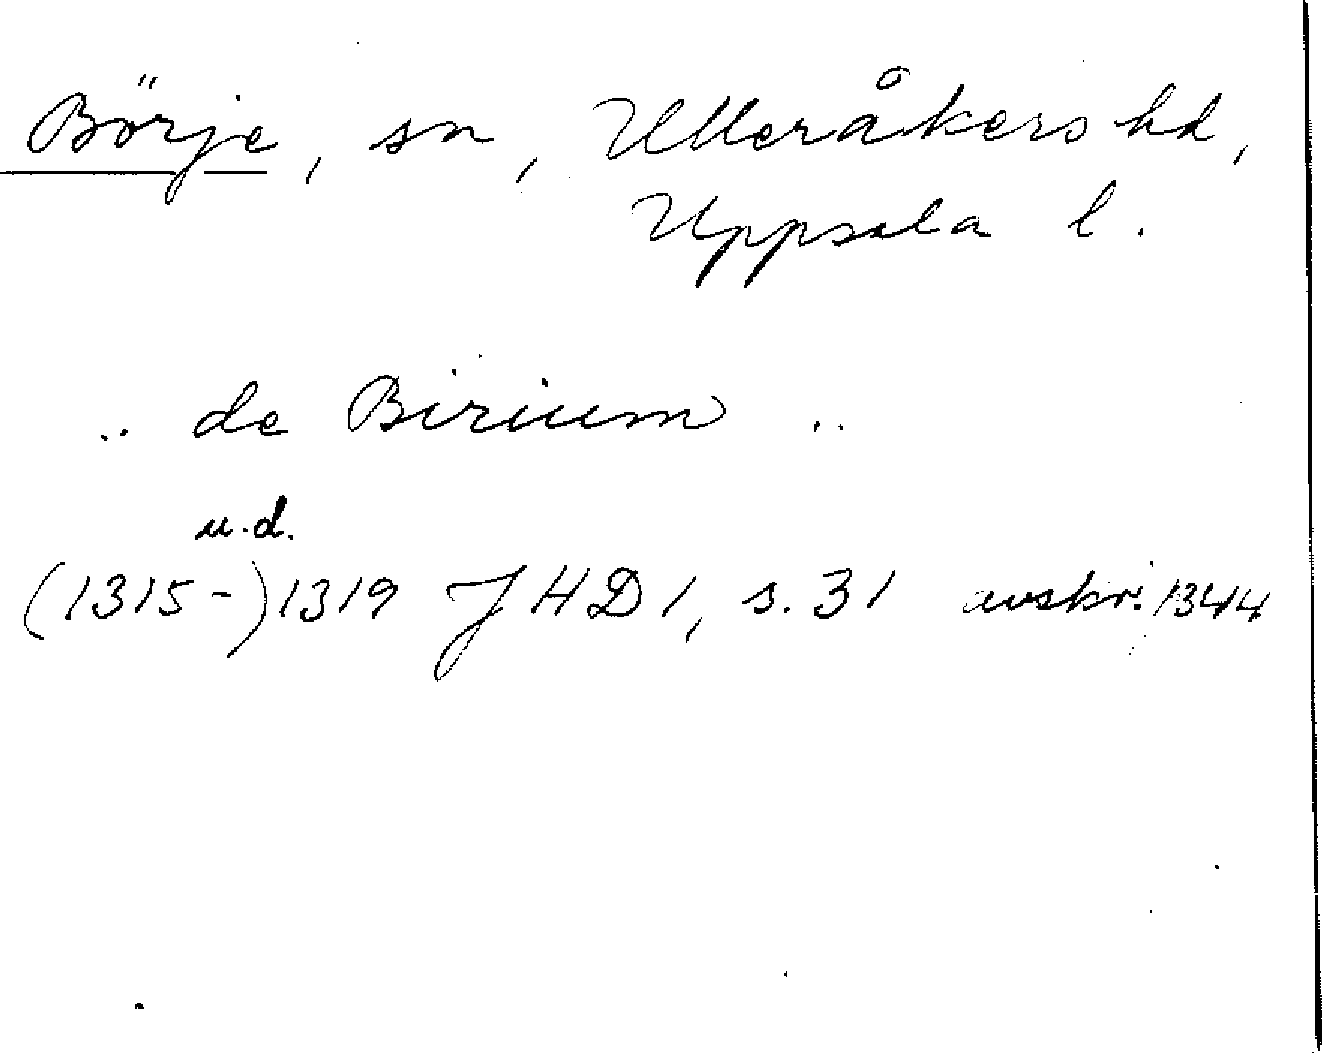 Börje, sn, Ulleråkers hd,
Uppsala l.
.. de Birium ..
u.d.
(1315-)1319 JHD 1, s. 31 avskr. 1344